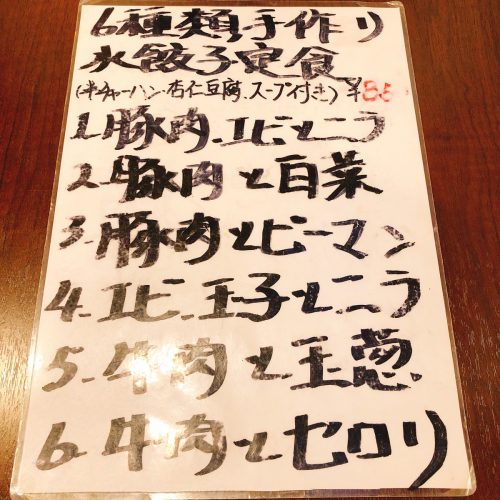 6種類手作り
水餃子定食
(半チャーハン・杏仁豆腐、スープ付き) ¥85
1.豚肉、エビとニラ
2.豚肉と白菜
3.豚肉とピーマン
4.エビ、玉子とニラ
5.牛肉と玉葱
6.牛肉とセロリ